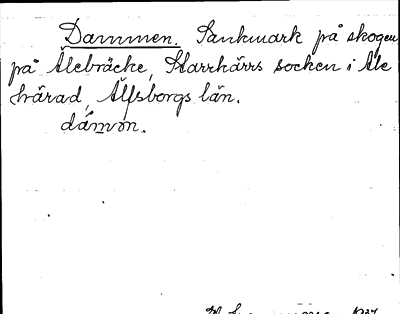 Dammen. Sankmark på skogen
på Ålebräcke, Starrkärrs socken i Ale
härad, Älfsborgs län.
dámon.
1937